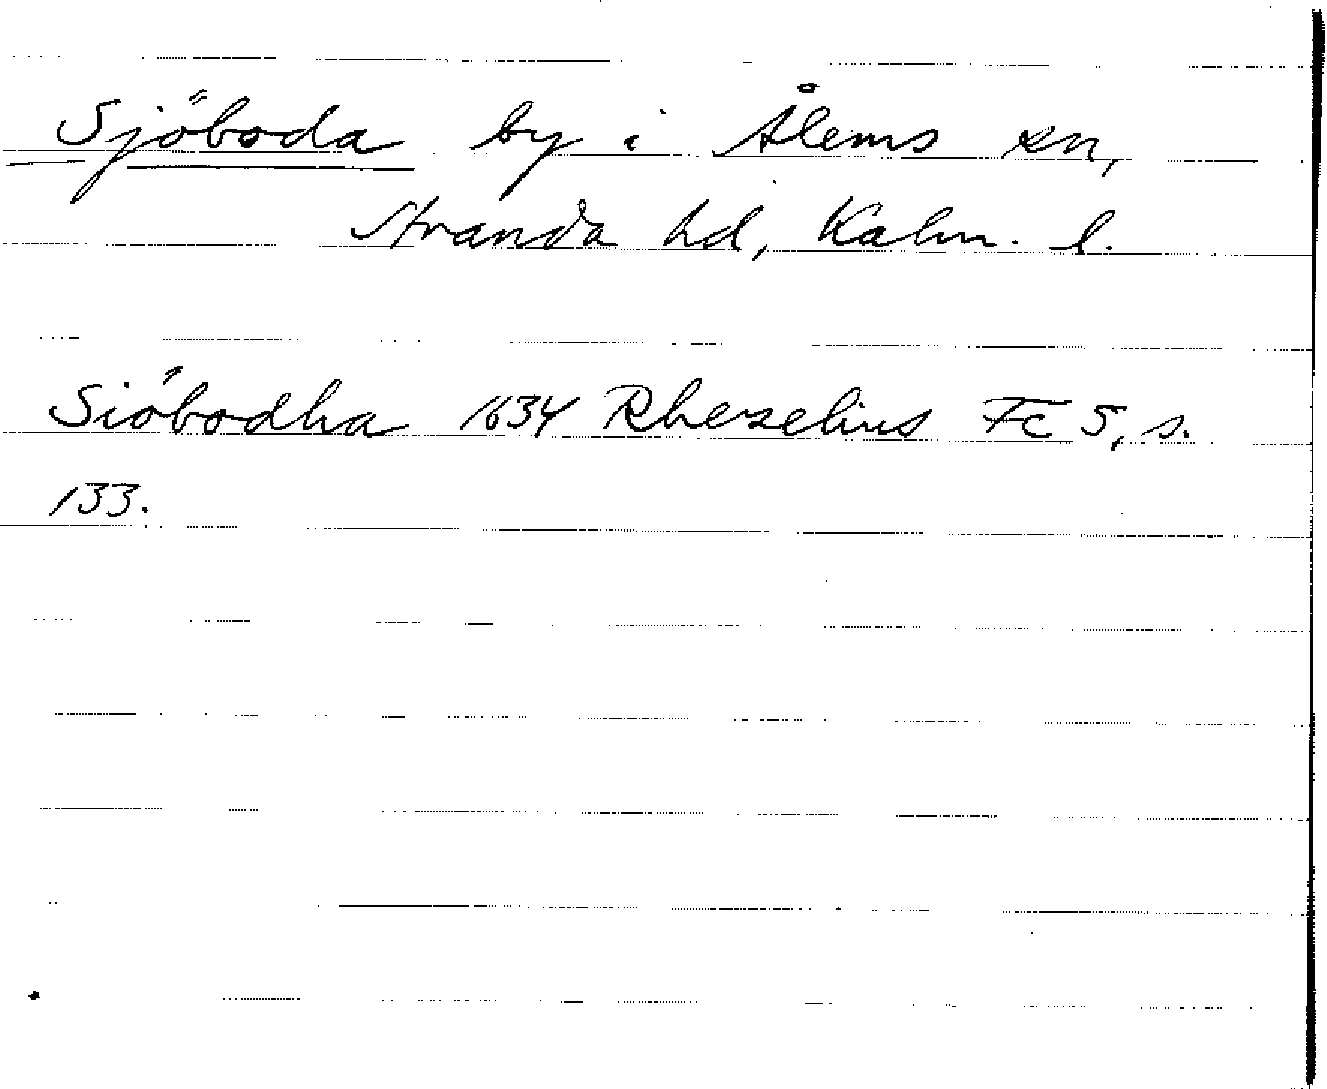 Sjöboda by i Ålems sn,
Stranda hd, Kalm. l.
Siöbodha 1634 Rhezelius Fc 5, s.
133.